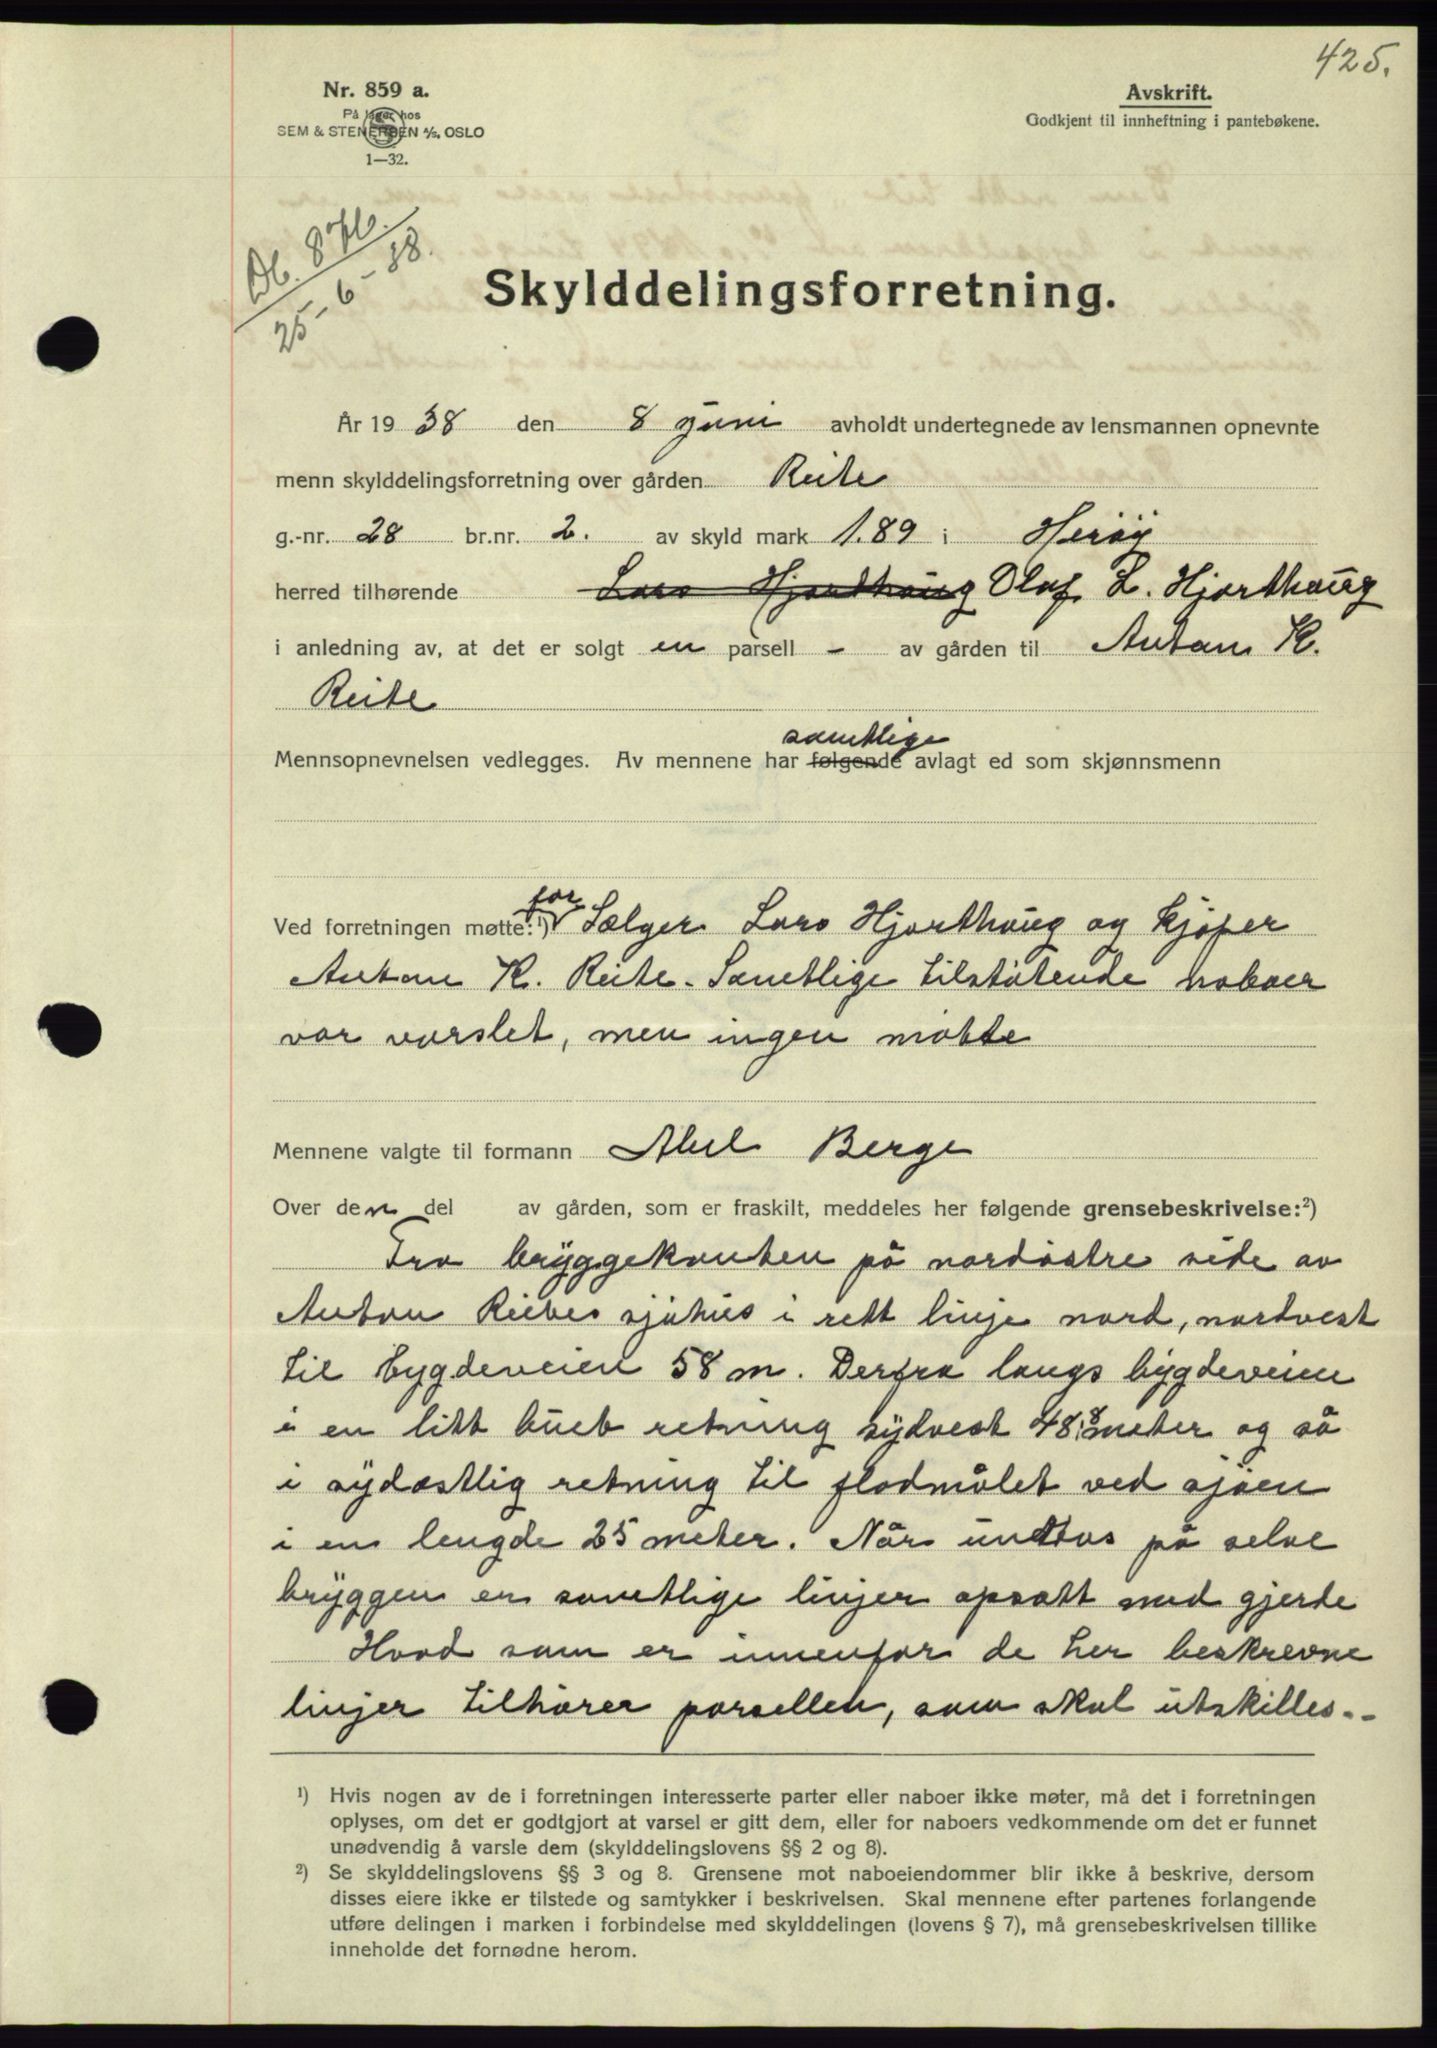 425.
Nr. 859 a.
På lager hos
SEM & STENERSEN A/S, OSLO
1—32.
Avskrift.
Godkjent til innheftning i pantebøkene.
Db. 876.
25-6-38.
Skylddelingsforretning.
År 1938 den 8 juni avholdt undertegnede av lensmannen opnevnte
menn skylddelingsforretning over gården Reite
g.-nr. 28 br.nr. 2. av skyld mark 1.89 i Herøy
herred tilhørende Lars Hjorthaug Olaf L. Hjorthaug
i anledning av, at det er solgt en parsell - av gården til Anton K.
Reite
samtlige
Mennsopnevnelsen vedlegges. Av mennene har følgende avlagt ed som skjønnsmenn
for
Ved forretningen møtte:¹) Sælger Lars Hjorthaug og kjøper
Anton K. Reite. Samtlige tilstøtende naboer
var varslet, men ingen møtte
Mennene valgte til formann Abel Berge
Over den del av gården, som er fraskilt, meddeles her følgende grensebeskrivelse:²)
Fra bryggekanten på nordøstre side av
Anton Reites sjøhus i rett linje nord, nordvest
til bygdeveien 58 m. Derfra langs bygdeveien
i en litt buet retning sydvest 48,8 meter og så
i sydøstlig retning til flodmålet ved sjøen
i en lengde 25 meter. Når unntas på selve
bryggen er samtlige linjer opsatt med gjerde
Hvad som er innenfor de her beskrevne
linjer tilhører parsellen, som skal utskilles.-
¹) Hvis nogen av de i forretningen interesserte parter eller naboer ikke møter, må det i forretningen
oplyses, om det er godtgjort at varsel er gitt dem, eller for naboers vedkommende om det er funnet
unødvendig å varsle dem (skylddelingslovens §§ 2 og 8).
²) Se skylddelingslovens §§ 3 og 8. Grensene mot naboeiendommer blir ikke å beskrive, dersom
disses eiere ikke er tilstede og samtykker i beskrivelsen. Skal mennene efter partenes forlangende
utføre delingen i marken i forbindelse med skylddelingen (lovens § 7), må grensebeskrivelsen tillike
inneholde det fornødne herom.